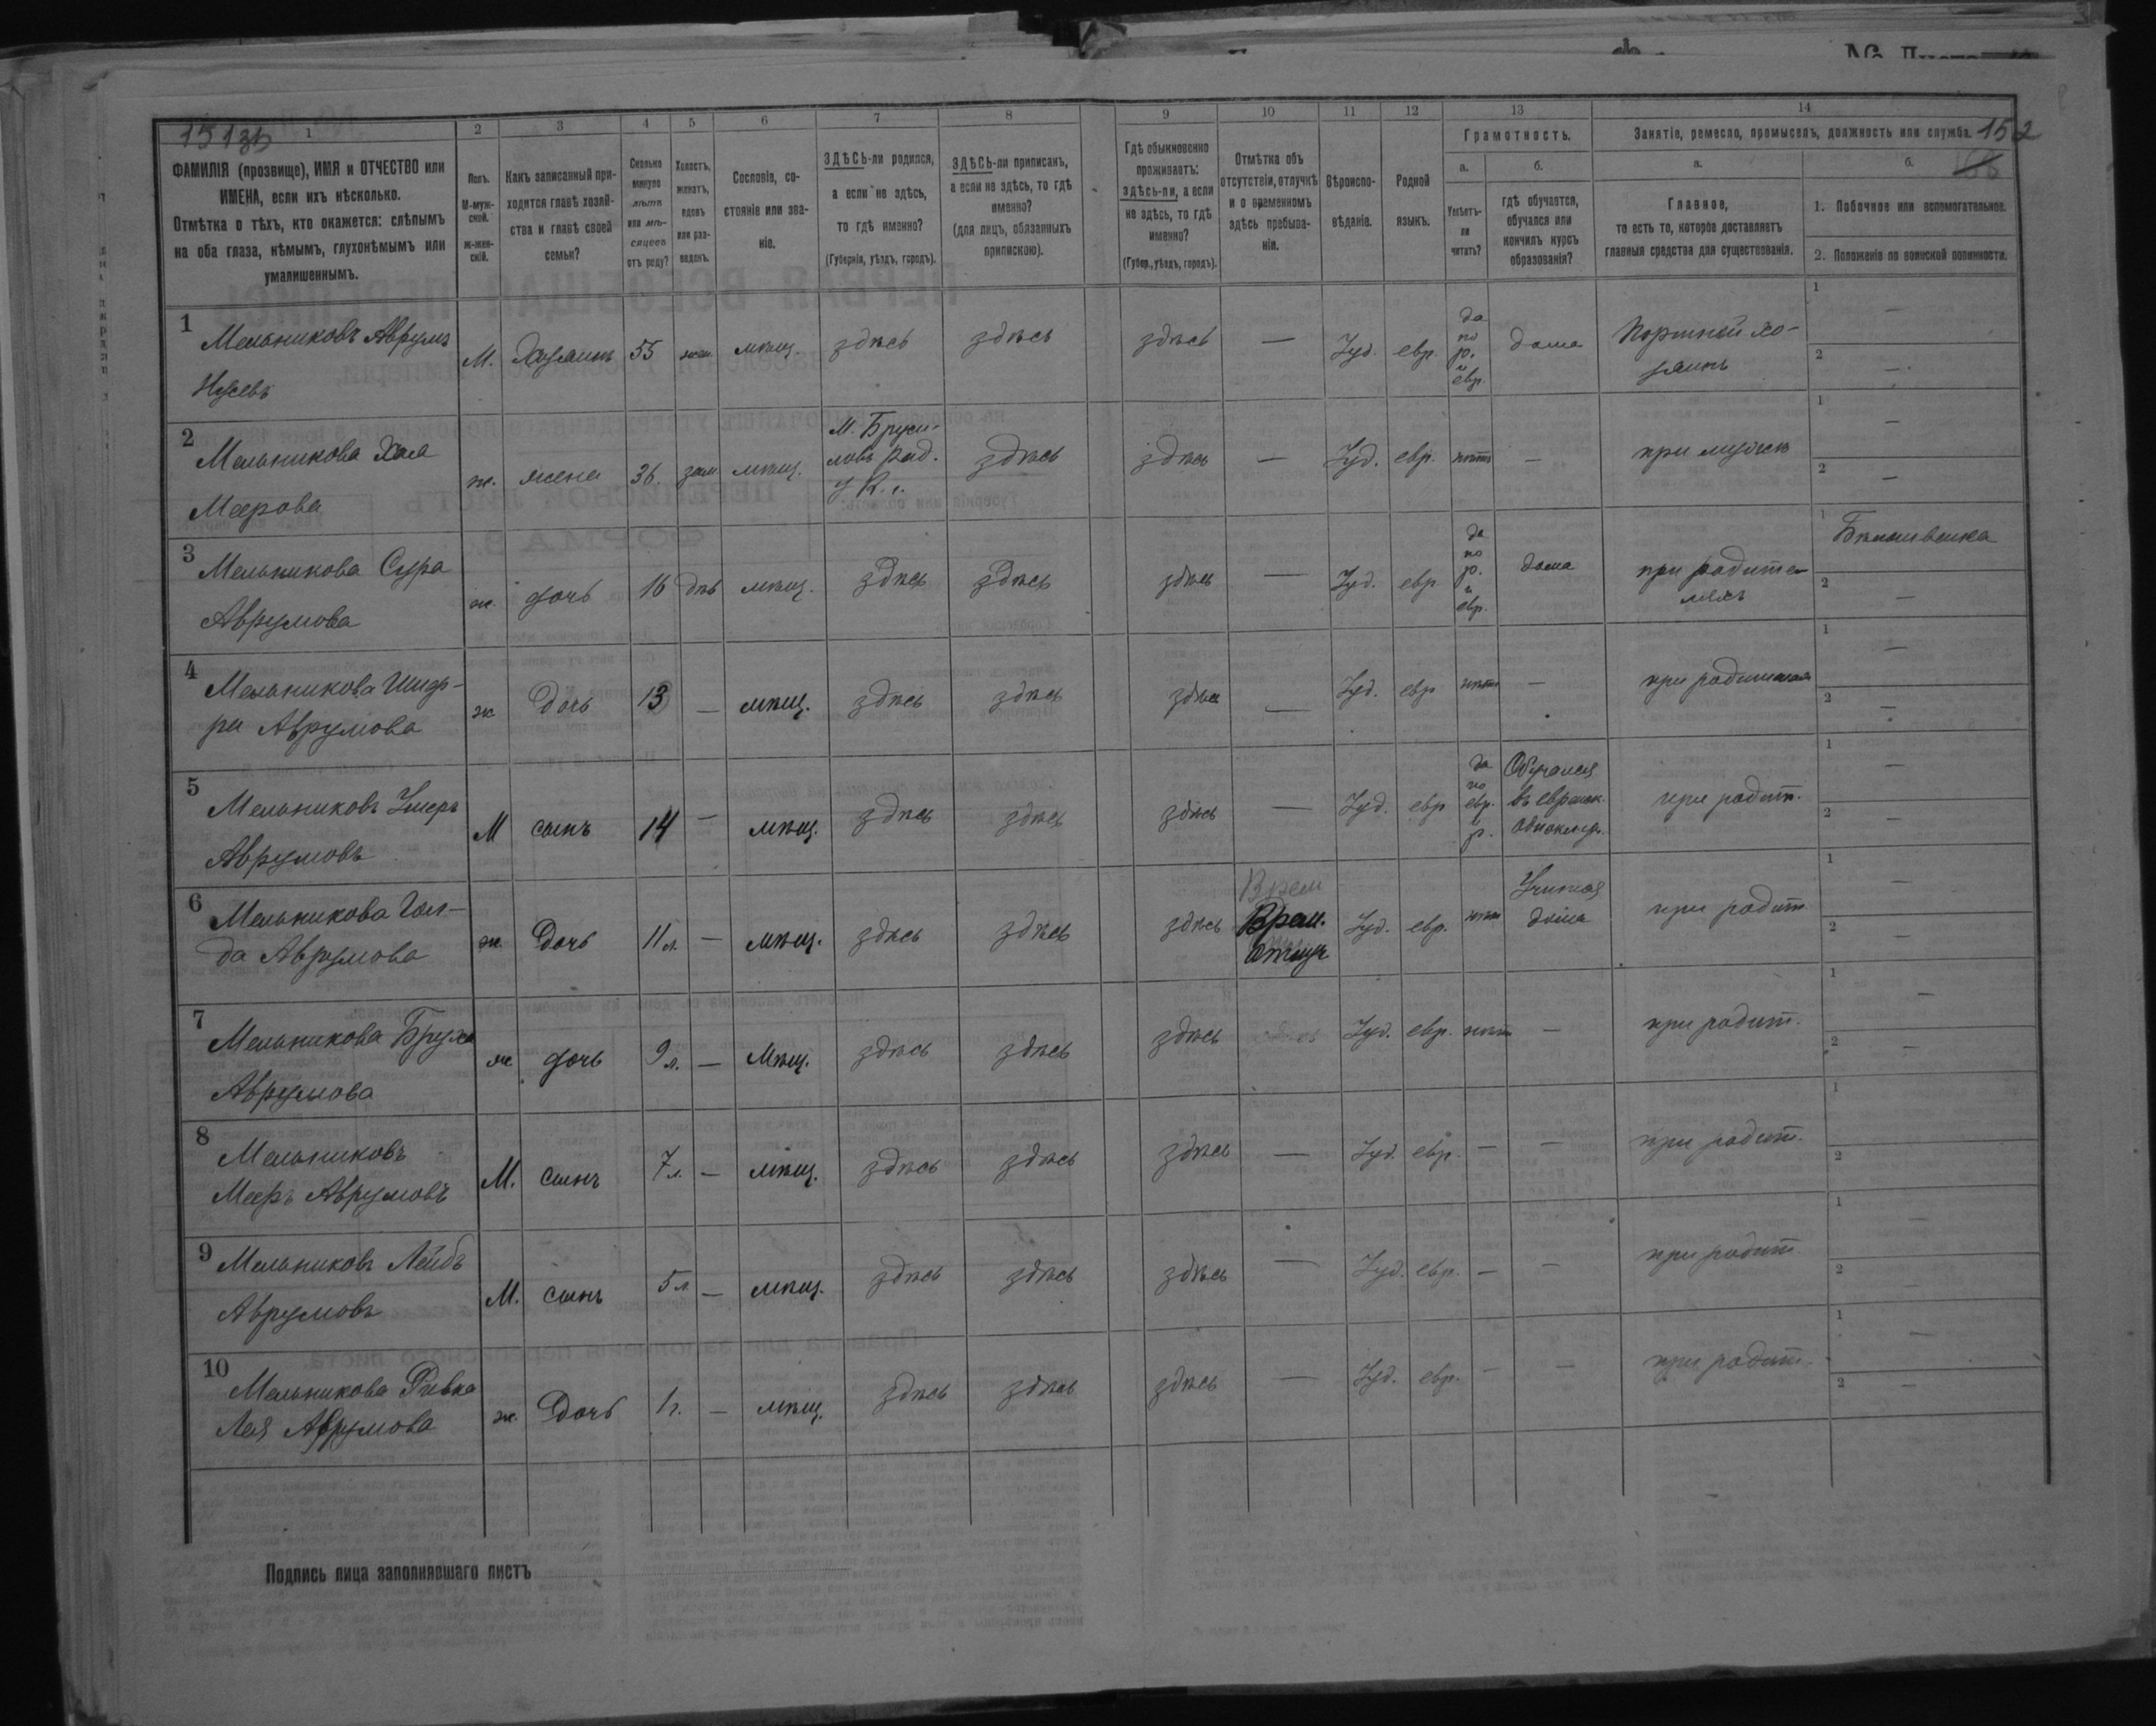 № Листа
152
1 2 3 4 5 6 7 8 9 10 11 12 13 14
ФАМИЛІЯ (прозвище), ИМЯ и ОТЧЕСТВО или
ИМЕНА, если ихъ нѣсколько.
Отмѣтка о тѣхъ, кто окажется: слѣпымъ
на оба глаза, нѣмымъ, глухонѣмымъ или
умалишеннымъ.
Полъ.
М-муж-
ской.
ж-жен-
скій.
Какъ записанный при-
ходится главѣ хозяй-
ства и главѣ своей
семьи?
Сколько
минуло
лѣтъ
или мѣ-
сяцевъ
отъ роду?
Холостъ,
женатъ,
вдовъ
или раз-
веденъ.
Сословіе, со-
стояніе или зва-
ніе.
ЗДѢСЬ-ли родился,
а если не здѣсь,
то гдѣ именно?
(Губернія, уѣздъ, городъ).
ЗДѢСЬ-ли приписанъ,
а если не здѣсь, то гдѣ
именно?
(для лицъ, обязанныхъ
припискою).
Гдѣ обыкновенно
проживаетъ:
здѣсь-ли, а если
не здѣсь, то гдѣ
именно?
(Губер., уѣздъ, городъ).
Отмѣтка объ
отсутствіи, отлучкѣ
и о временномъ
здѣсь пребыва-
ніи.
Вѣроиспо-
вѣданіе.
Родной
языкъ.
Грамотность.
а.
Умѣетъ-
ли
читать?
б.
гдѣ обучается,
обучался или
кончилъ курсъ
образованія?
Занятіе, ремесло, промыселъ, должность или служба.
а.
Главное,
то есть то, которое доставляетъ
главныя средства для существованія.
б.
1. Побочное или вспомогательное.
2. Положеніе по воинской повинности.
1 Мельниковъ Аврумъ
М. Хозяинъ 55 жен. мѣщ. здѣсь здѣсь здѣсь — Іуд. евр. да по р. и евр. дома Портной хо-
зяинъ
1 —
2 —
2 Мельникова Хая
Меерова
ж. жена 36. зам. мѣщ. М. Бруси-
ловъ Рад.
у К. г.
здѣсь здѣсь — Іуд. евр. нѣтъ — при мужѣ
1 —
2 —
3 Мельникова Сура
Аврумова
ж. дочь 16 дѣв мѣщ. здѣсь здѣсь здѣсь — Іуд. евр да по р. и евр. дома при родите-
ляхъ
1 Бѣлошвейка
2 —
4 Мельникова
Аврумова
ж дочь 13 — мѣщ. здѣсь здѣсь здѣсь — Іуд. евр нѣтъ — при родителяхъ
1 —
2 —
5 Мельниковъ
Аврумовъ
М сынъ 14 — мѣщ. здѣсь здѣсь здѣсь — Іуд. евр да по евр. и р. Обучался
въ евройск.
при родит.
1 —
2 —
6 Мельникова Гол-
да Аврумова
ж. дочь 11 л. — мѣщ. здѣсь здѣсь здѣсь Врем
Врем.
отлуч
Іуд. евр. нѣтъ Учится
дома
при родит
1 —
2 —
7 Мельникова Бруха
Аврумова
ж дочь 9 л. — мѣщ. здѣсь здѣсь здѣсь Іуд. евр. нѣтъ — при родит.
1 —
2 —
8 Мельниковъ
Мееръ Аврумовъ
М. сынъ 7 л. — мѣщ. здѣсь здѣсь здѣсь — Іуд. евр. — — при родит.
1
2
9 Мельниковъ Лейбъ
Аврумовъ
М. сынъ 5 л — мѣщ. здѣсь здѣсь здѣсь — Іуд. евр. — — при родит
1 —
2 —
10 Мельникова Ривка
Лея Аврумова
ж. дочь 1 г. — мѣщ. здѣсь здѣсь здѣсь — Іуд. евр. — — при родит.
1 —
2 —
Подпись лица заполнявшаго листъ